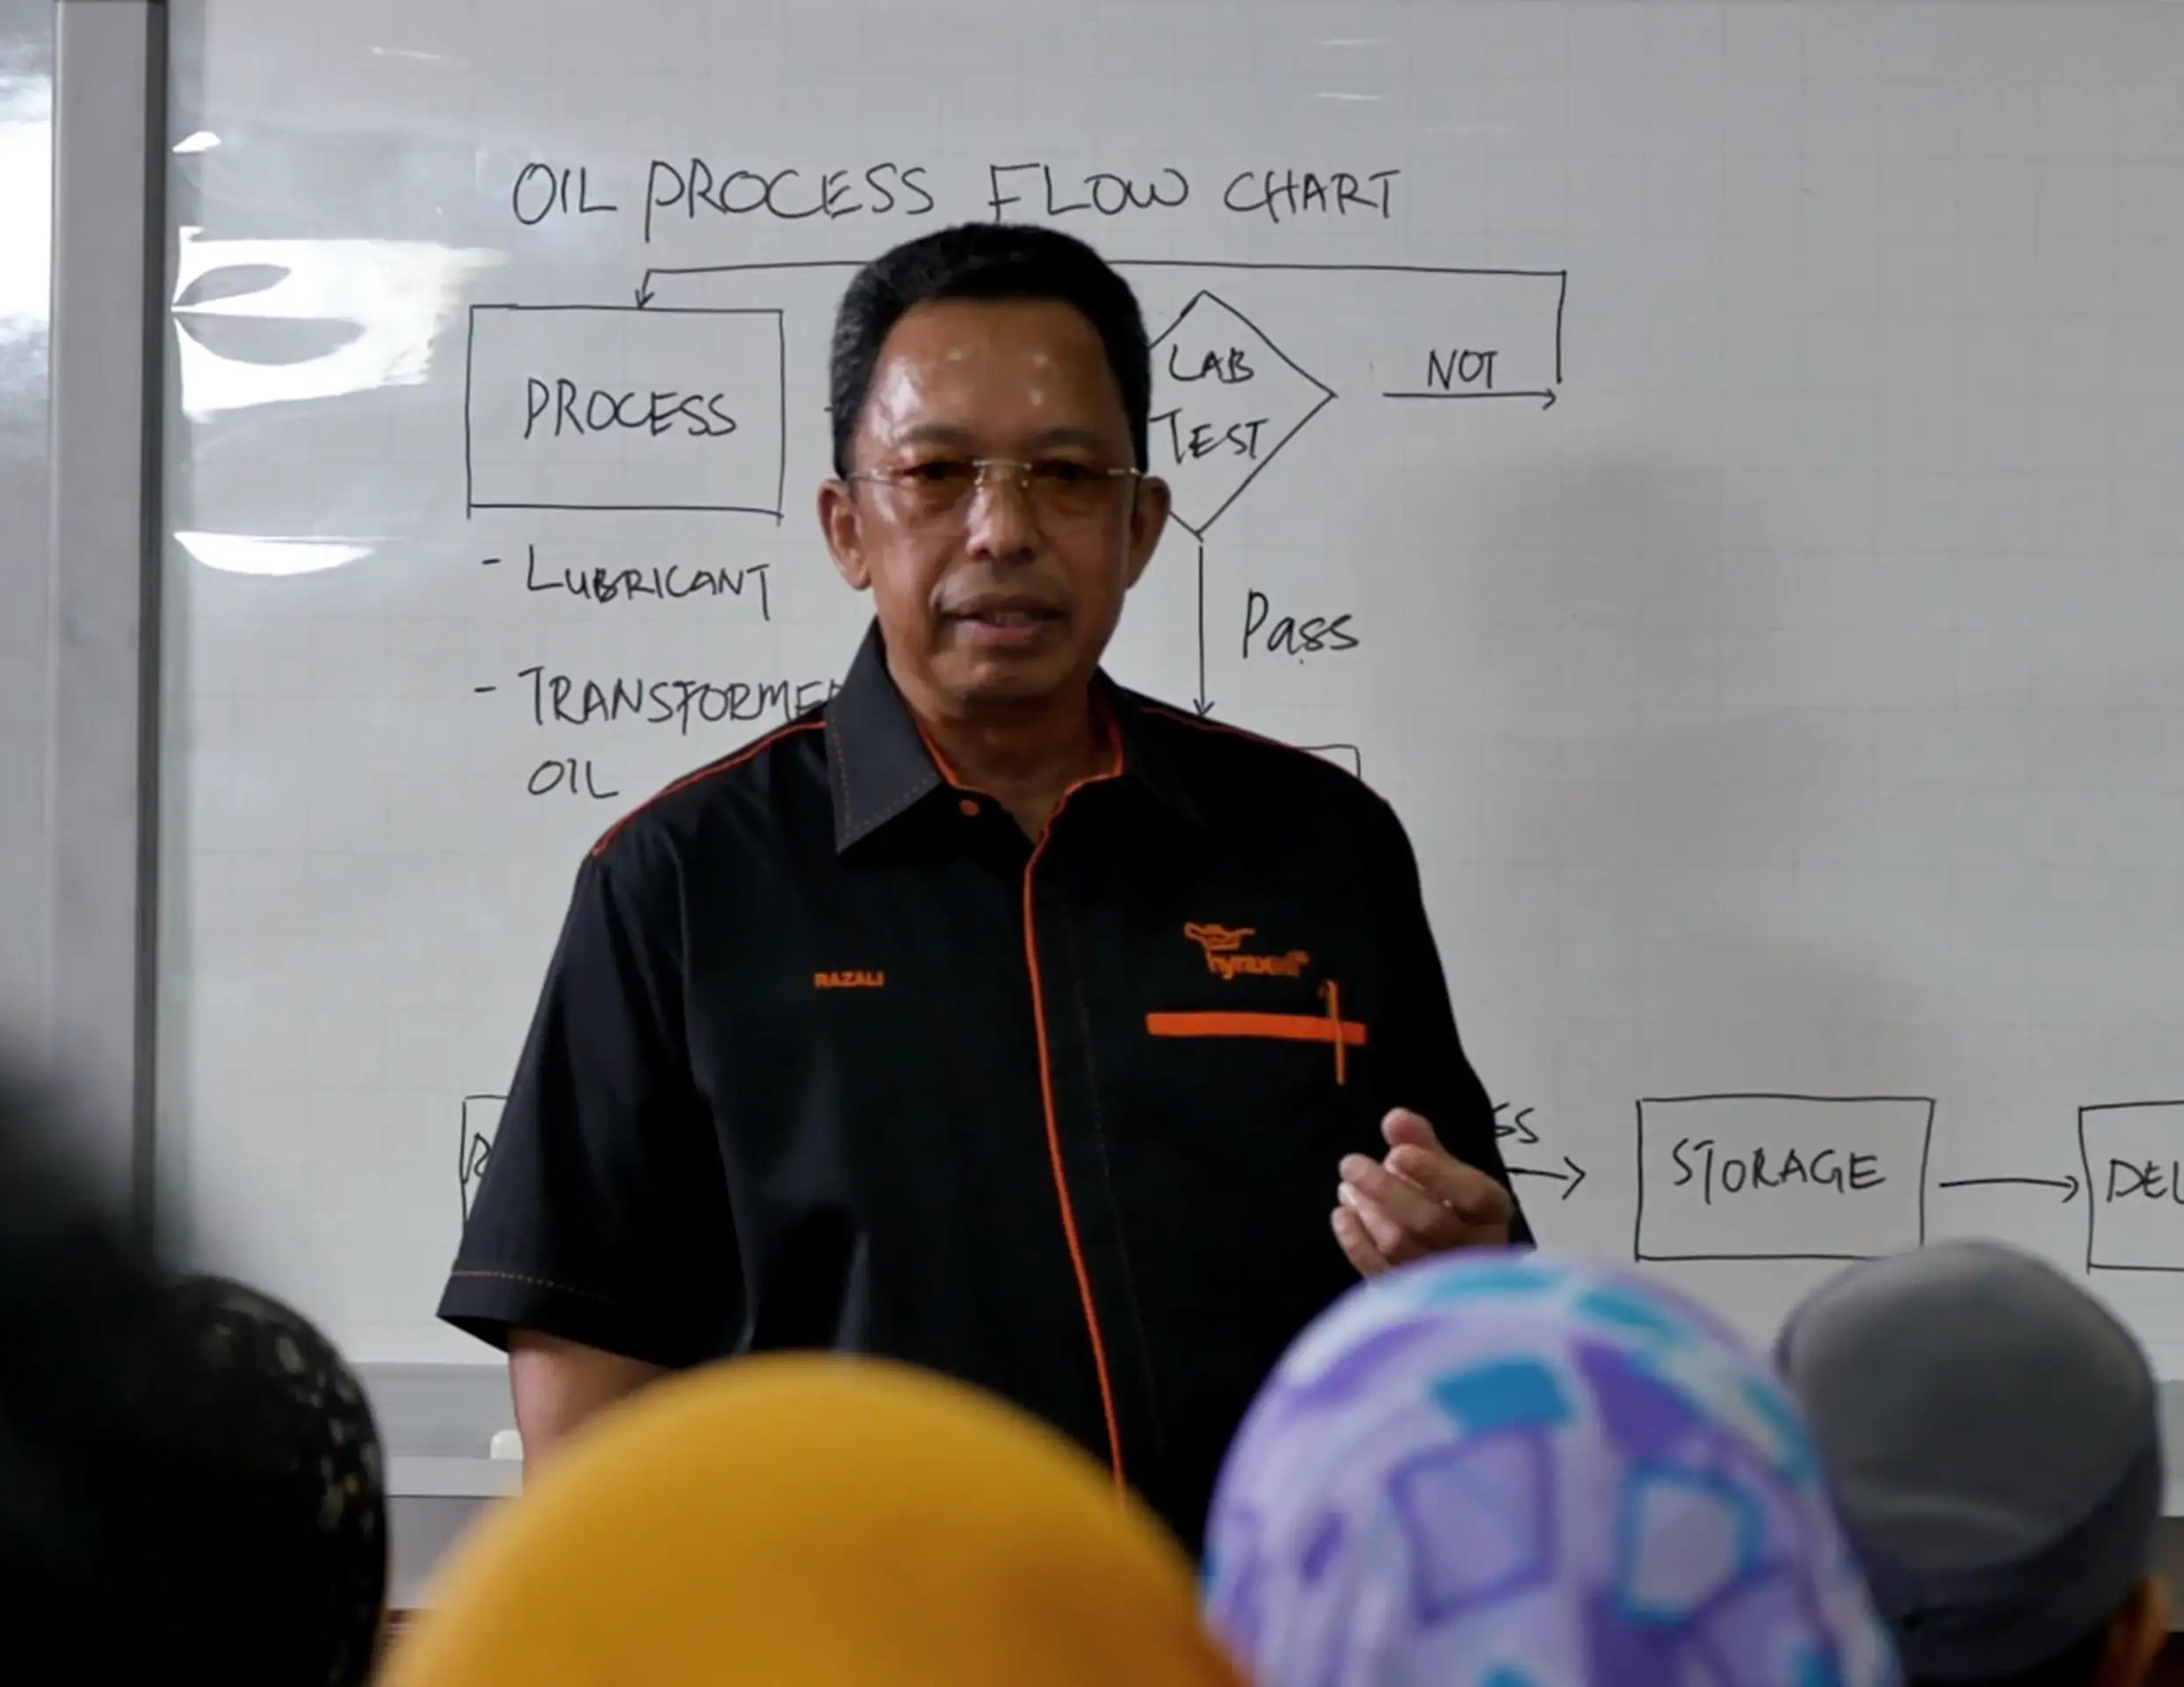 OIL PROCESS FLOW CHART
PROCESS
LAB
TEST
NOT
- LUBRICANT
Pass
- TRANSFORMER
OIL
RAZALI
STORAGE
DEL